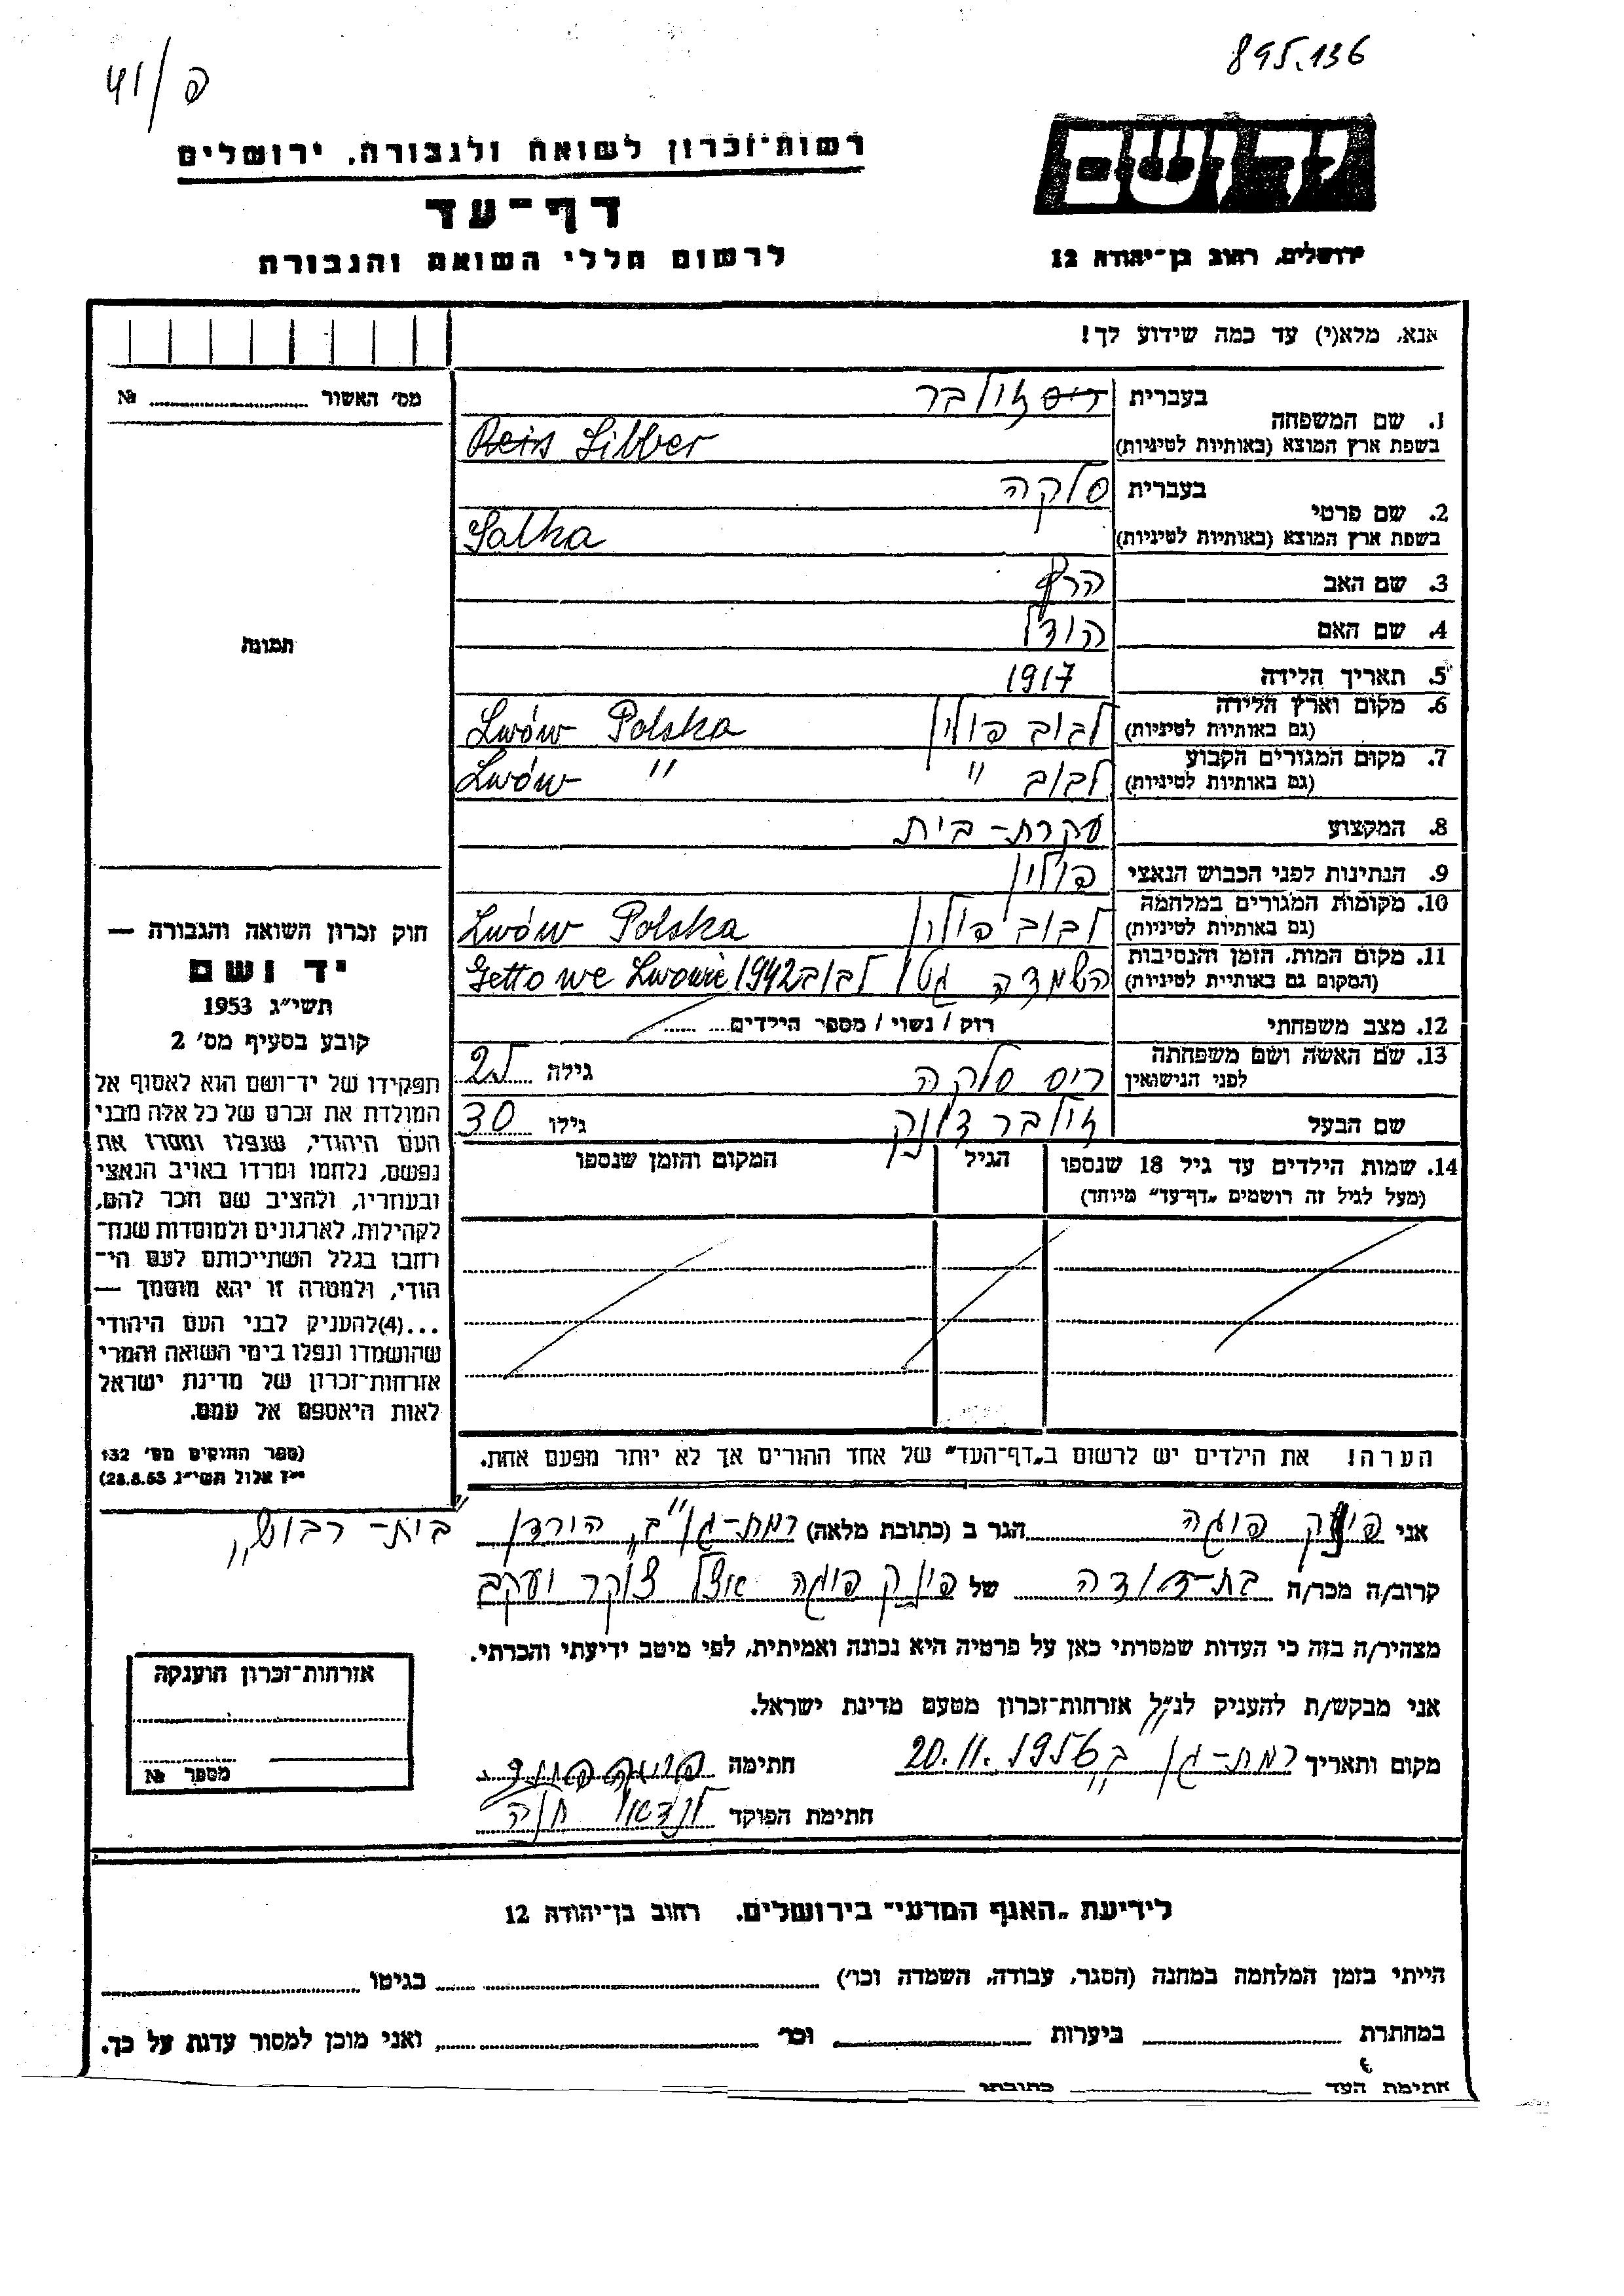 895.136
פ/41
רשות־זכרון לשואה ולגבורה, ירושלים
דף־עד
לרשום חללי השואה והגבורה
יד ושם
ירושלים, רחוב בן־יהודה 12
אנא, מלא(י) עד כמה שידוע לך!
מס' האשור № 
1. שם המשפחה
בעברית ריס זילבר
בשפת ארץ המוצא (באותיות לטיניות) Reis Silber
2. שם פרטי
בעברית סלקה
בשפת ארץ המוצא (באותיות לטיניות) Salka
3. שם האב הרץ
4. שם האם הודל
5. תאריך הלידה 1917
6. מקום וארץ הלידה (גם באותיות לטיניות) לבוב פולין Lwów Polska
7. מקום המגורים הקבוע (גם באותיות לטיניות) לבוב " Lwów "
8. המקצוע עקרת-בית
9. הנתינות לפני הכבוש הנאצי פולין
10. מקומות המגורים במלחמה (גם באותיות לטיניות) לבוב פולין Lwów Polska
11. מקום המות, הזמן והנסיבות (המקום גם באותיות לטיניות) השמדה גטו לבוב 1942 Getto we Lwowie
12. מצב משפחתי רוק / נשוי / מספר הילדים
13. שם האשה ושם משפחתה לפני הנישואין ריס סלקה גילה 25
שם הבעל זילבר גילו 30
14. שמות הילדים עד גיל 18 שנספו הגיל המקום והזמן שנספו
(מעל לגיל זה רושמים „דף־עד" מיוחד)
הערה! את הילדים יש לרשום ב„דף־העד" של אחד ההורים אך לא יותר מפעם אחת.
תמונה
חוק זכרון השואה והגבורה —
יד ושם
תשי"ג 1953
קובע בסעיף מס' 2
תפקידו של יד־ושם הוא לאסוף אל
המולדת את זכרם של כל אלה מבני
העם היהודי, שנפלו ומסרו את
נפשם, נלחמו ומרדו באויב הנאצי
ובעוזריו, ולהציב שם וזכר להם,
לקהילות, לארגונים ולמוסדות שנח־
רבו בגלל השתייכותם לעם הי־
הודי, ולמטרה זו יהא מוסמך —
...(4)להעניק לבני העם היהודי
שהושמדו ונפלו בימי השואה והמרי
אזרחות־זכרון של מדינת ישראל
לאות היאספם אל עמם.
(ספר החוקים מס' 132
י"ז אלול תשי"ג 28.8.53)
אני פינק פוגה הגר ב (כתובת מלאה) רמת-גן ב, הירדן בית-
קרוב/ה מכר/ה בת-דודה של פינק פוגה אצל צוקר יעקב
מצהיר/ה בזה כי העדות שמסרתי כאן על פרטיה היא נכונה ואמיתית, לפי מיטב ידיעתי והכרתי.
אני מבקש/ת להעניק לנ"ל אזרחות־זכרון מטעם מדינת ישראל.
מקום ותאריך רמת-גן ב 20.11.1956 חתימה
חתימת הפוקד לנדאו חנה
אזרחות־זכרון הוענקה
מספר №
לידיעת „האגף המדעי" בירושלים, רחוב בן־יהודה 12
הייתי בזמן המלחמה במחנה (הסגר, עבודה, השמדה וכו') בגיטו
במחתרת ביערות וכו' ואני מוכן למסור עדות על כך.
חתימת העד כתובתי